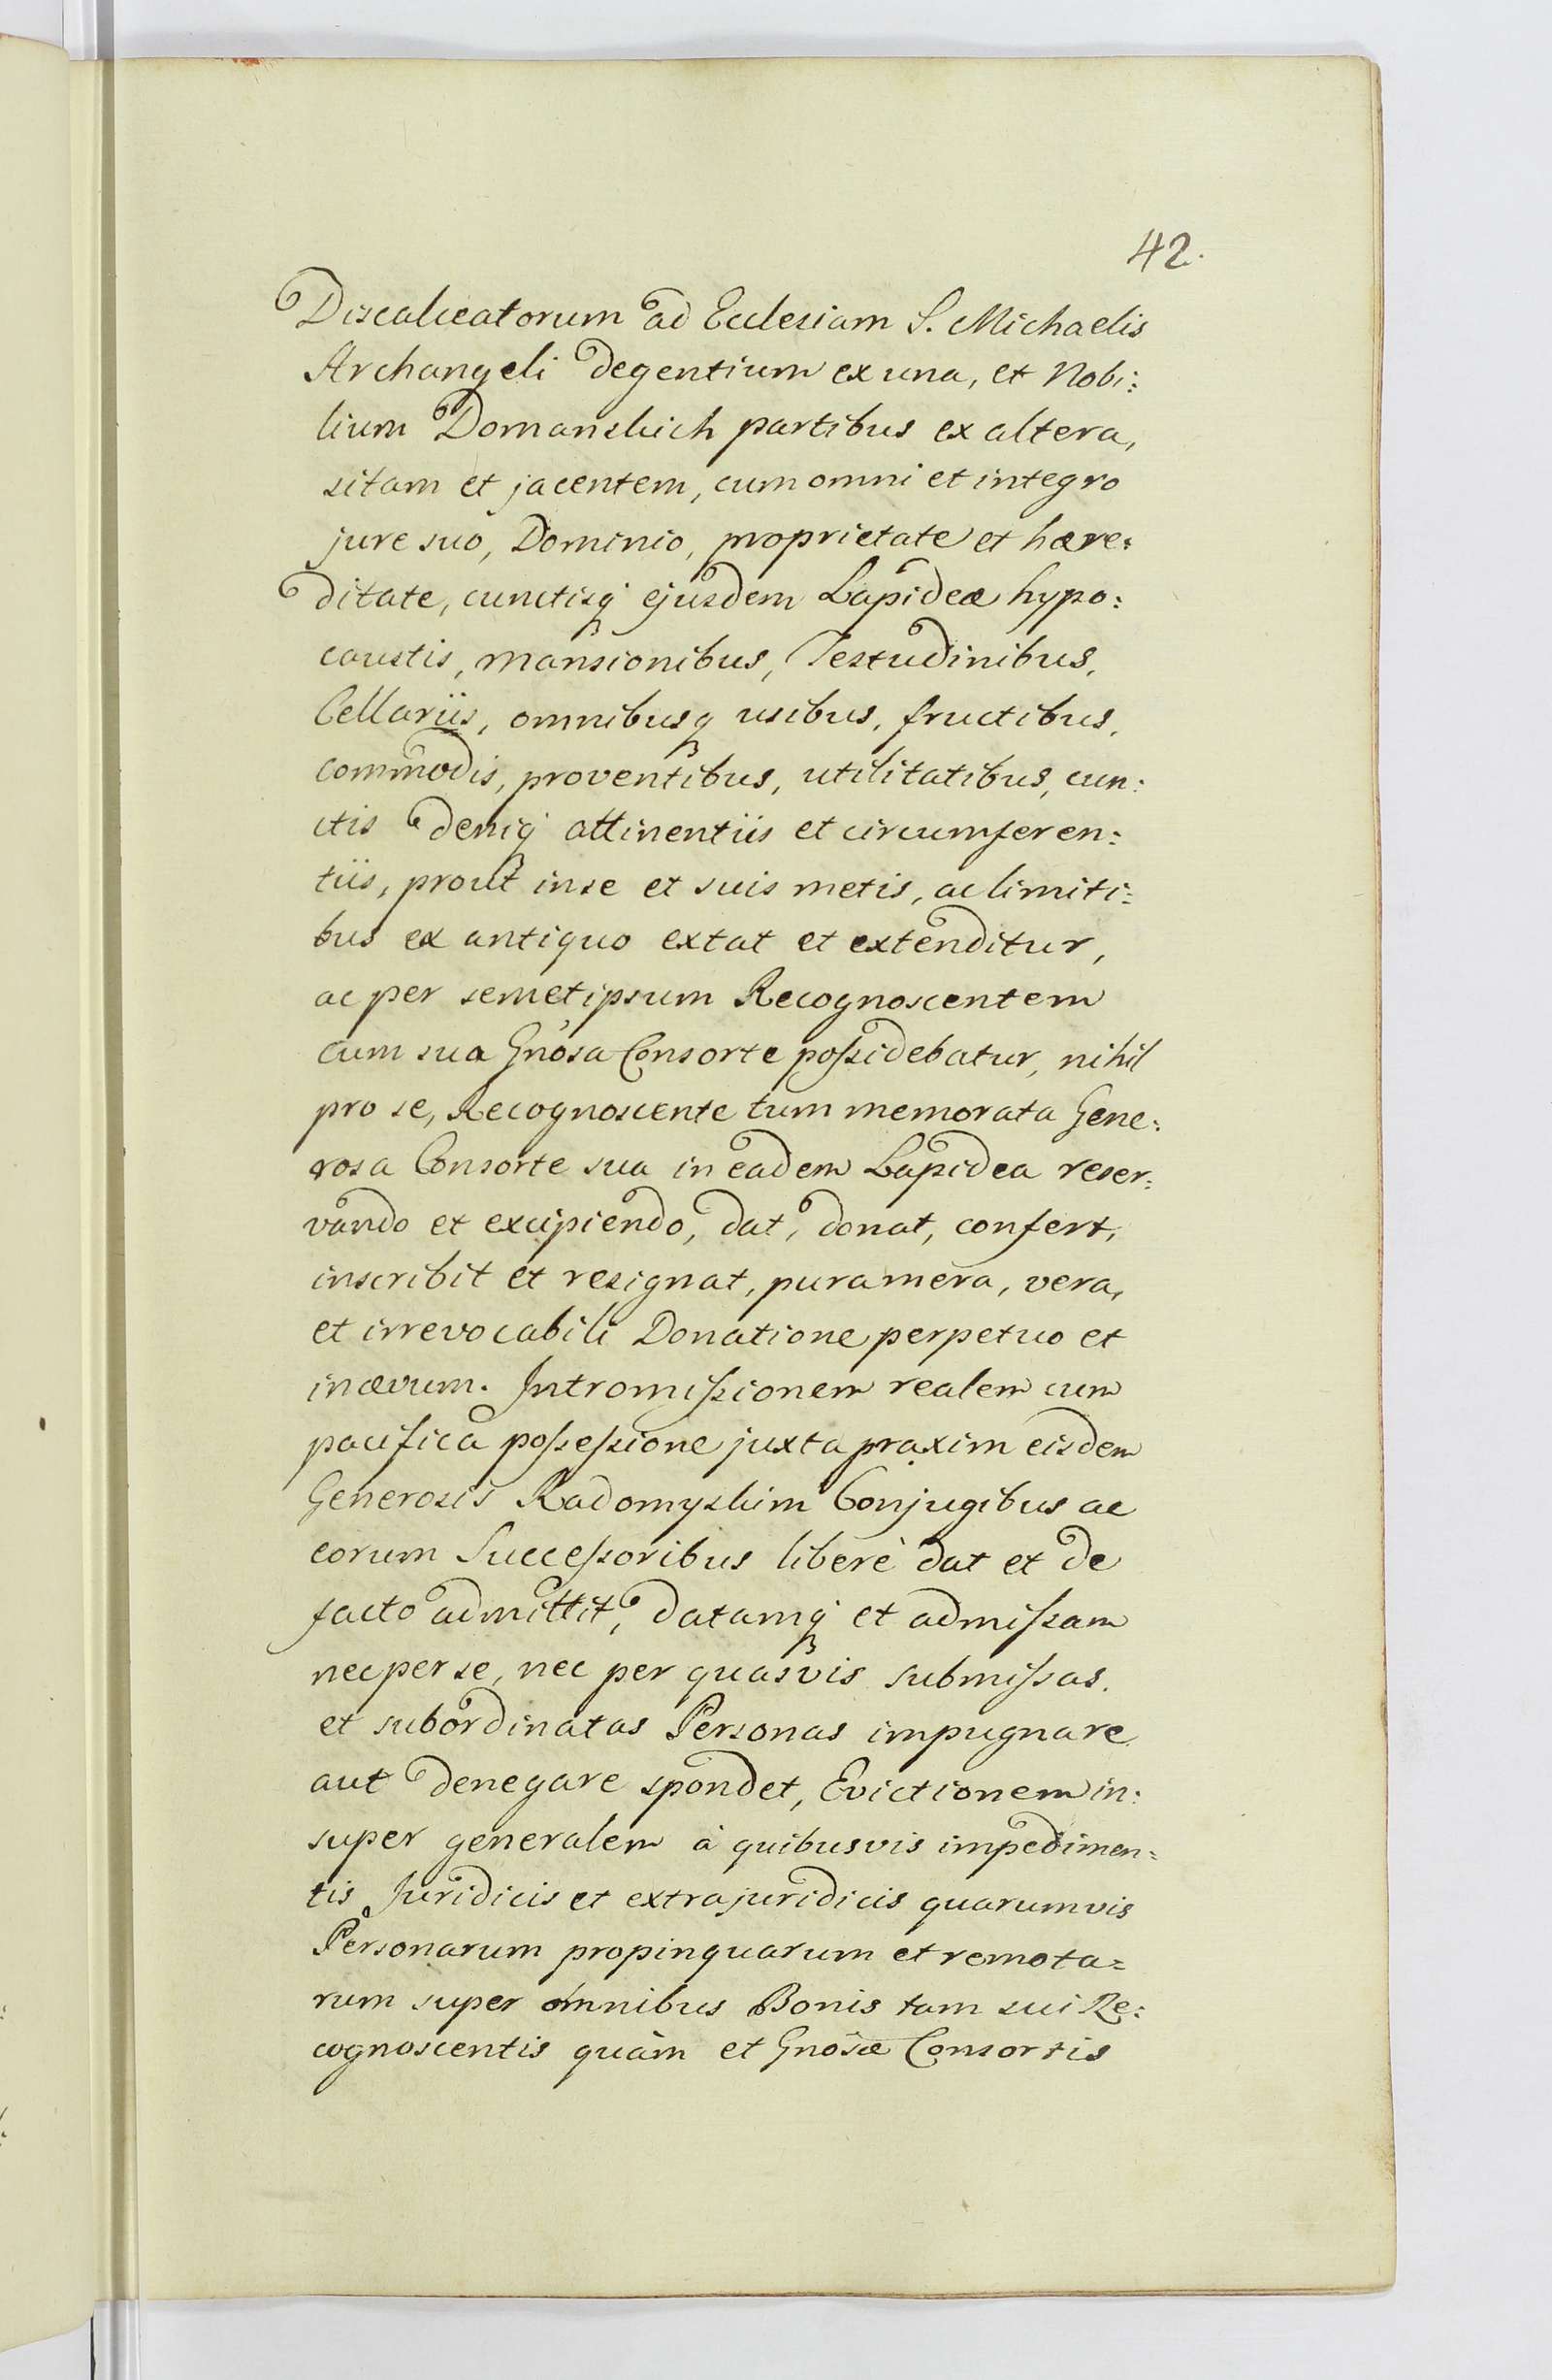 42.
Discalceatorum ad Ecclesiam S. Michaelis
Archangeli degentium ex una, et Nobi:
lium Domanskich partibus ex altera,
sitam et jacentem, cum omni et integro
jure suo, Dominio, proprietate et hære:
ditate, cunctisq́ ejusdem Lapideæ hypo:
caustis, mansionibus, Testudinibus,
Cellariis, omnibusq usibus, fructibus,
commodis, proventibus, utilitatibus, cun:
ctis deniq́ attinentiis et circumferen:
tiis, prout in se et suis metis, ac limiti:
bus ex antiquo extat et extenditur,
ac per semetipsum Recognoscentem
cum sua Gnosa Consorte possidebatur, nihil
pro se, Recognoscente tum memorata Gene:
rosa Consorte sua in eadem Lapidea reser:
vando et excipiendo, dat, donat, confert,
inscribit et resignat, pura mera, vera,
et irrevocabili Donatione perpetuo et
in ævum. Intromissionem realem cum
pacifica possessione juxta praxim eisdem
Generosis Radomyskim Conjugibus ac
eorum Successoribus liberè dat et de
facto admittit, datamq́ et admissam
nec per se, nec per quasvis submissas,
et subordinatas Personas impugnare
aut denegare spondet, Evictionem in:
super generalem à quibusvis impedimen:
tis Juridicis et extrajuridicis quarumvis
Personarum propinquarum et remota:
rum super omnibus Bonis tam sui Re:
cognoscentis quàm et Gnosæ Consortis